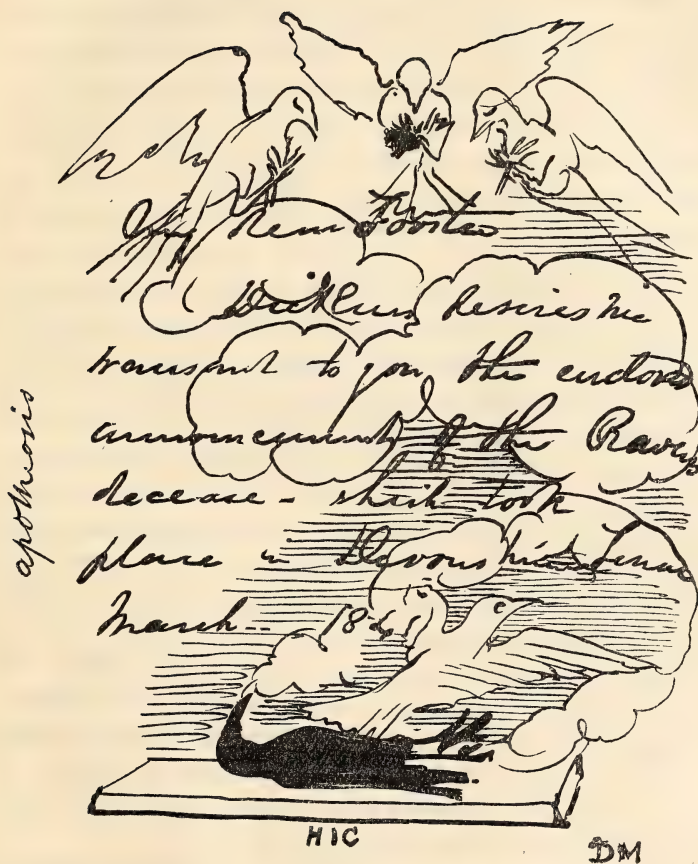 My dear Forster
Dickens desires me
transmit to you the enclosed
announcement of the Ravens
decease - which took
place in Devonshire Terrace
March - 18
apotheosis
HIC
DM